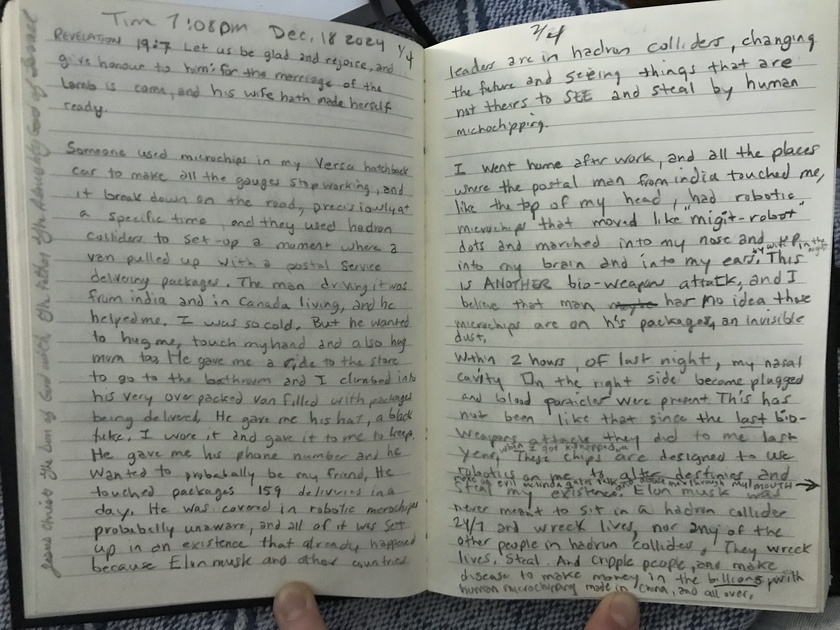 Time 7:08pm Dec. 18 2024 1/4
REVELATION 19:7 Let us be glad and rejoice, and
give honour to him: for the marriage of the
Lamb is come, and his wife hath made herself
ready.
Someone used microchips in my Versa hatchback
car to make all the gauges stop working, and
it break down on the road, preciously at
a specific time, and they used hadron
colliders to set-up a moment where a
van pulled up with a postal service
delivering packages. The man driving it was
from india and in Canada living, and he
helped me. I was so cold. But he wanted
to hug me, touch my hand and also hug
mum too. He gave me a ride to the store
to go to the bathroom and I climbed into
his very over packed van filled with packages
being delivered. He gave me his hat, a black
tuke. I wore it and gave it to me to keep.
He gave me his phone number and he
wanted to probably be my friend, He
touched packages 159 deliveries in a
day. He was covered in robotic microchips
probabilly unaware, and all of it was set
up in an existence that already happened
because Elon musk and other countries
Jesus Christ The Son of God with The Father The Almighty God of Israel
2/4
leaders are in hadron colliders, changing
the future and seeing things that are
not theirs to SEE and steal by human
microchipping.
I went home after work, and all the places
where the postal man from india touched me,
like the top of my head, had robotic
microchips that moved like "migit-robot"
dots and marched into my nose and
into my brain and into my ears. This
is ANOTHER bio-weapons attack, and I
believe that man has no idea those
microchips are on his packages, an invisible
dust.
Within 2 hours, of last night, my nasal
cavity On the right side become plugged
and blood particles were present. This has
not been like that since the last bio-
weapons attack they did to me last
year, when I got kidnapped. These chips are designed to use
robotics on me to alter destinies and
steal my existence. Elon musk was
never meant to sit in a hadron collider
24/7 and wreck lives, nor any of the
other people in hadron colliders. They wreck
lives. Steal. And cripple people, and make
disease to make money in the billions, with
human microchipping made in China, and all over,